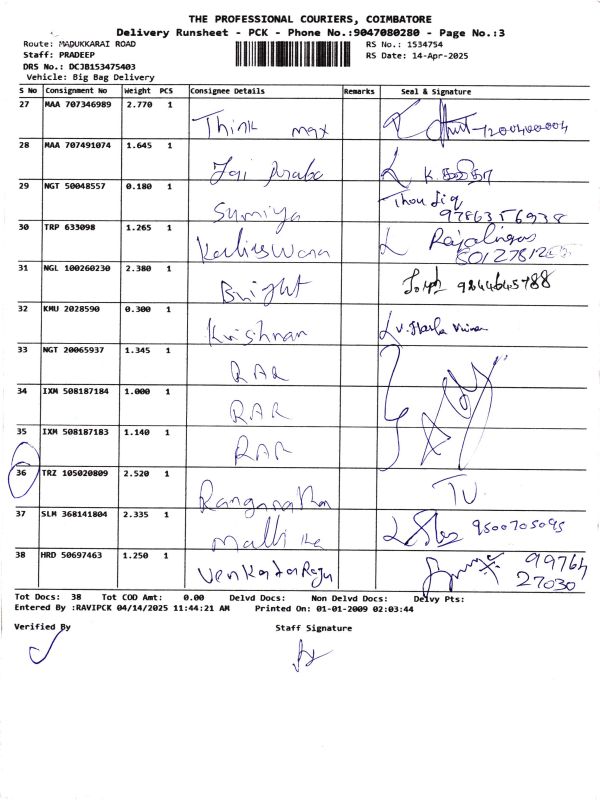 THE PROFESSIONAL COURIERS, COIMBATORE
Delivery Runsheet - PCK - Phone No.:9047080280 - Page No.:3
Route: MADUKKARAI ROAD RS No.: 1534754
Staff: PRADEEP RS Date: 14-Apr-2025
DRS No.: DCJB153475403
Vehicle: Big Bag Delivery
S No Consignment No Weight PCS Consignee Details Remarks Seal & Signature
27 MAA 707346989 2.770 1 Think max
28 MAA 707491074 1.645 1 Jai
29 NGT 50048557 0.180 1 Sumiya 9786356938
30 TRP 633098 1.265 1
31 NGL 100260230 2.380 1 Bright 9844645788
32 KMU 2028590 0.300 1 Krishnan
33 NGT 20065937 1.345 1 RAR
34 IXM 508187184 1.000 1 RAR
35 IXM 508187183 1.140 1 RAR
36 TRZ 105020809 2.520 1 Ranganathan
37 SLM 368141804 2.335 1 Mallika 9500705095
38 HRD 50697463 1.250 1 VenkataRaju 99764
27030
Tot Docs: 38 Tot COD Amt: 0.00 Delvd Docs: Non Delvd Docs: Delvy Pts:
Entered By :RAVIPCK 04/14/2025 11:44:21 AM Printed On: 01-01-2009 02:03:44
Verified By Staff Signature